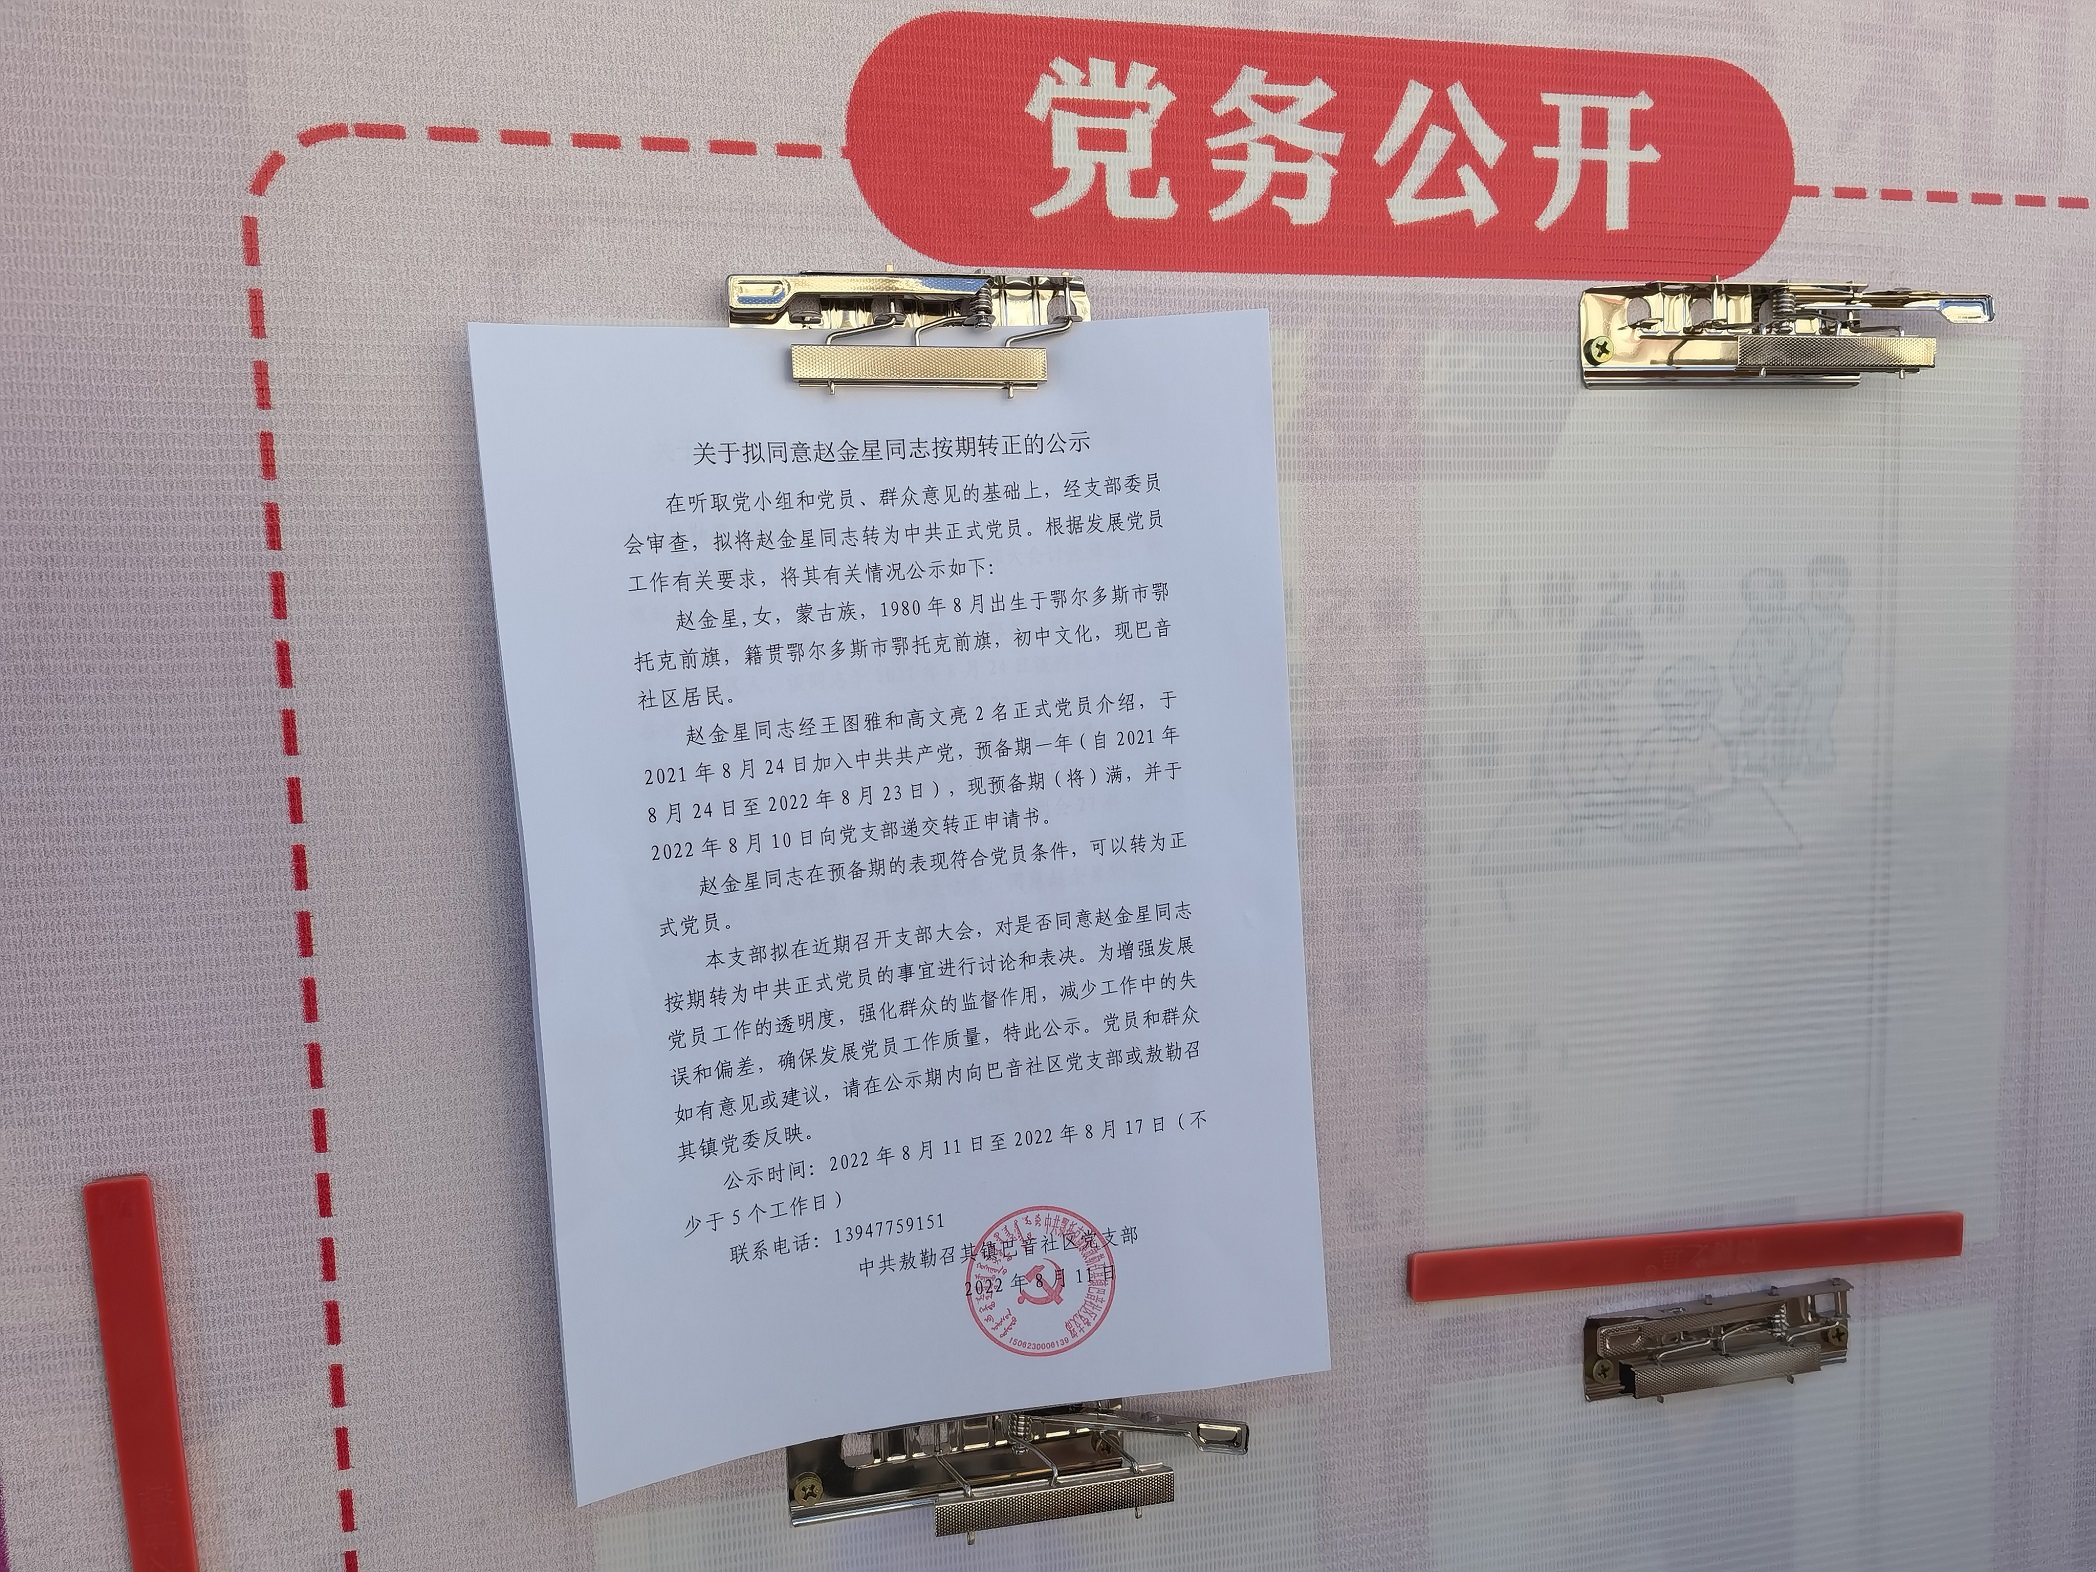 党务公开
关于拟同意赵金星同志按期转正的公示
在听取党小组和党员、群众意见的基础上，经支部委员
会审查，拟将赵金星同志转为中共正式党员。根据发展党员
工作有关要求，将其有关情况公示如下：
赵金星,女，蒙古族，1980年8月出生于鄂尔多斯市鄂
托克前旗，籍贯鄂尔多斯市鄂托克前旗，初中文化，现巴音
社区居民。
赵金星同志经王图雅和高文亮2名正式党员介绍，于
2021年8月24日加入中共共产党，预备期一年（自2021年
8月24日至2022年8月23日），现预备期（将）满，并于
2022年8月10日向党支部递交转正申请书。
赵金星同志在预备期的表现符合党员条件，可以转为正
式党员。
本支部拟在近期召开支部大会，对是否同意赵金星同志
按期转为中共正式党员的事宜进行讨论和表决。为增强发展
党员工作的透明度，强化群众的监督作用，减少工作中的失
误和偏差，确保发展党员工作质量，特此公示。党员和群众
如有意见或建议，请在公示期内向巴音社区党支部或敖勒召
其镇党委反映。
公示时间：2022年8月11日至2022年8月17日（不
少于5个工作日）
联系电话：13947759151
中共敖勒召其镇巴音社区党支部
2022年8月11日
1506230006139